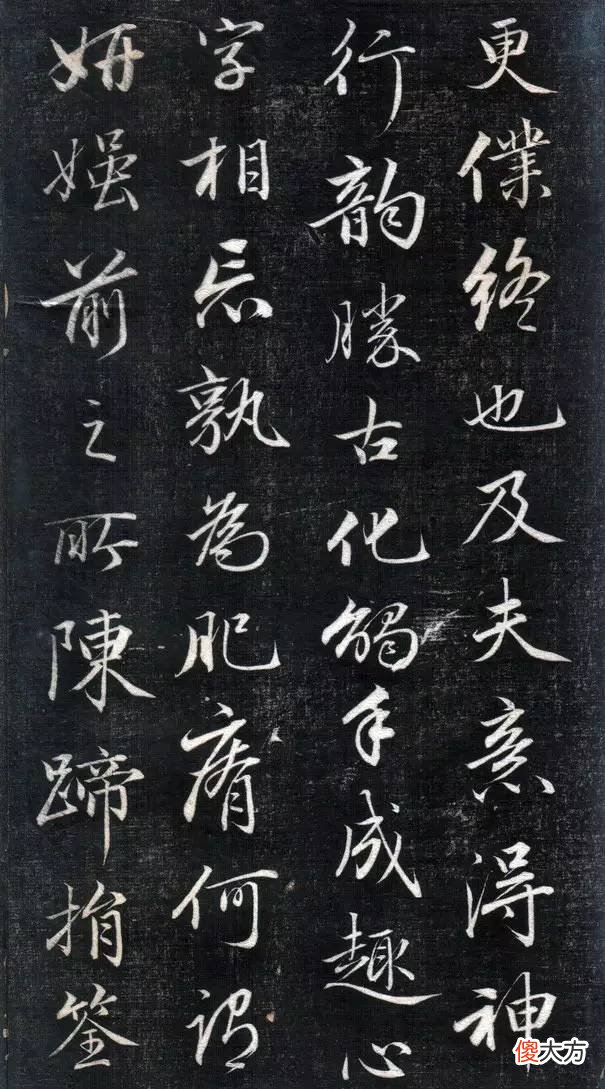 更僕終也及夫意得神
行韻勝古化觸手成趣心
字相忘孰為肥瘠何謂
妍媸前之所陳蹄捐筌
傻大方